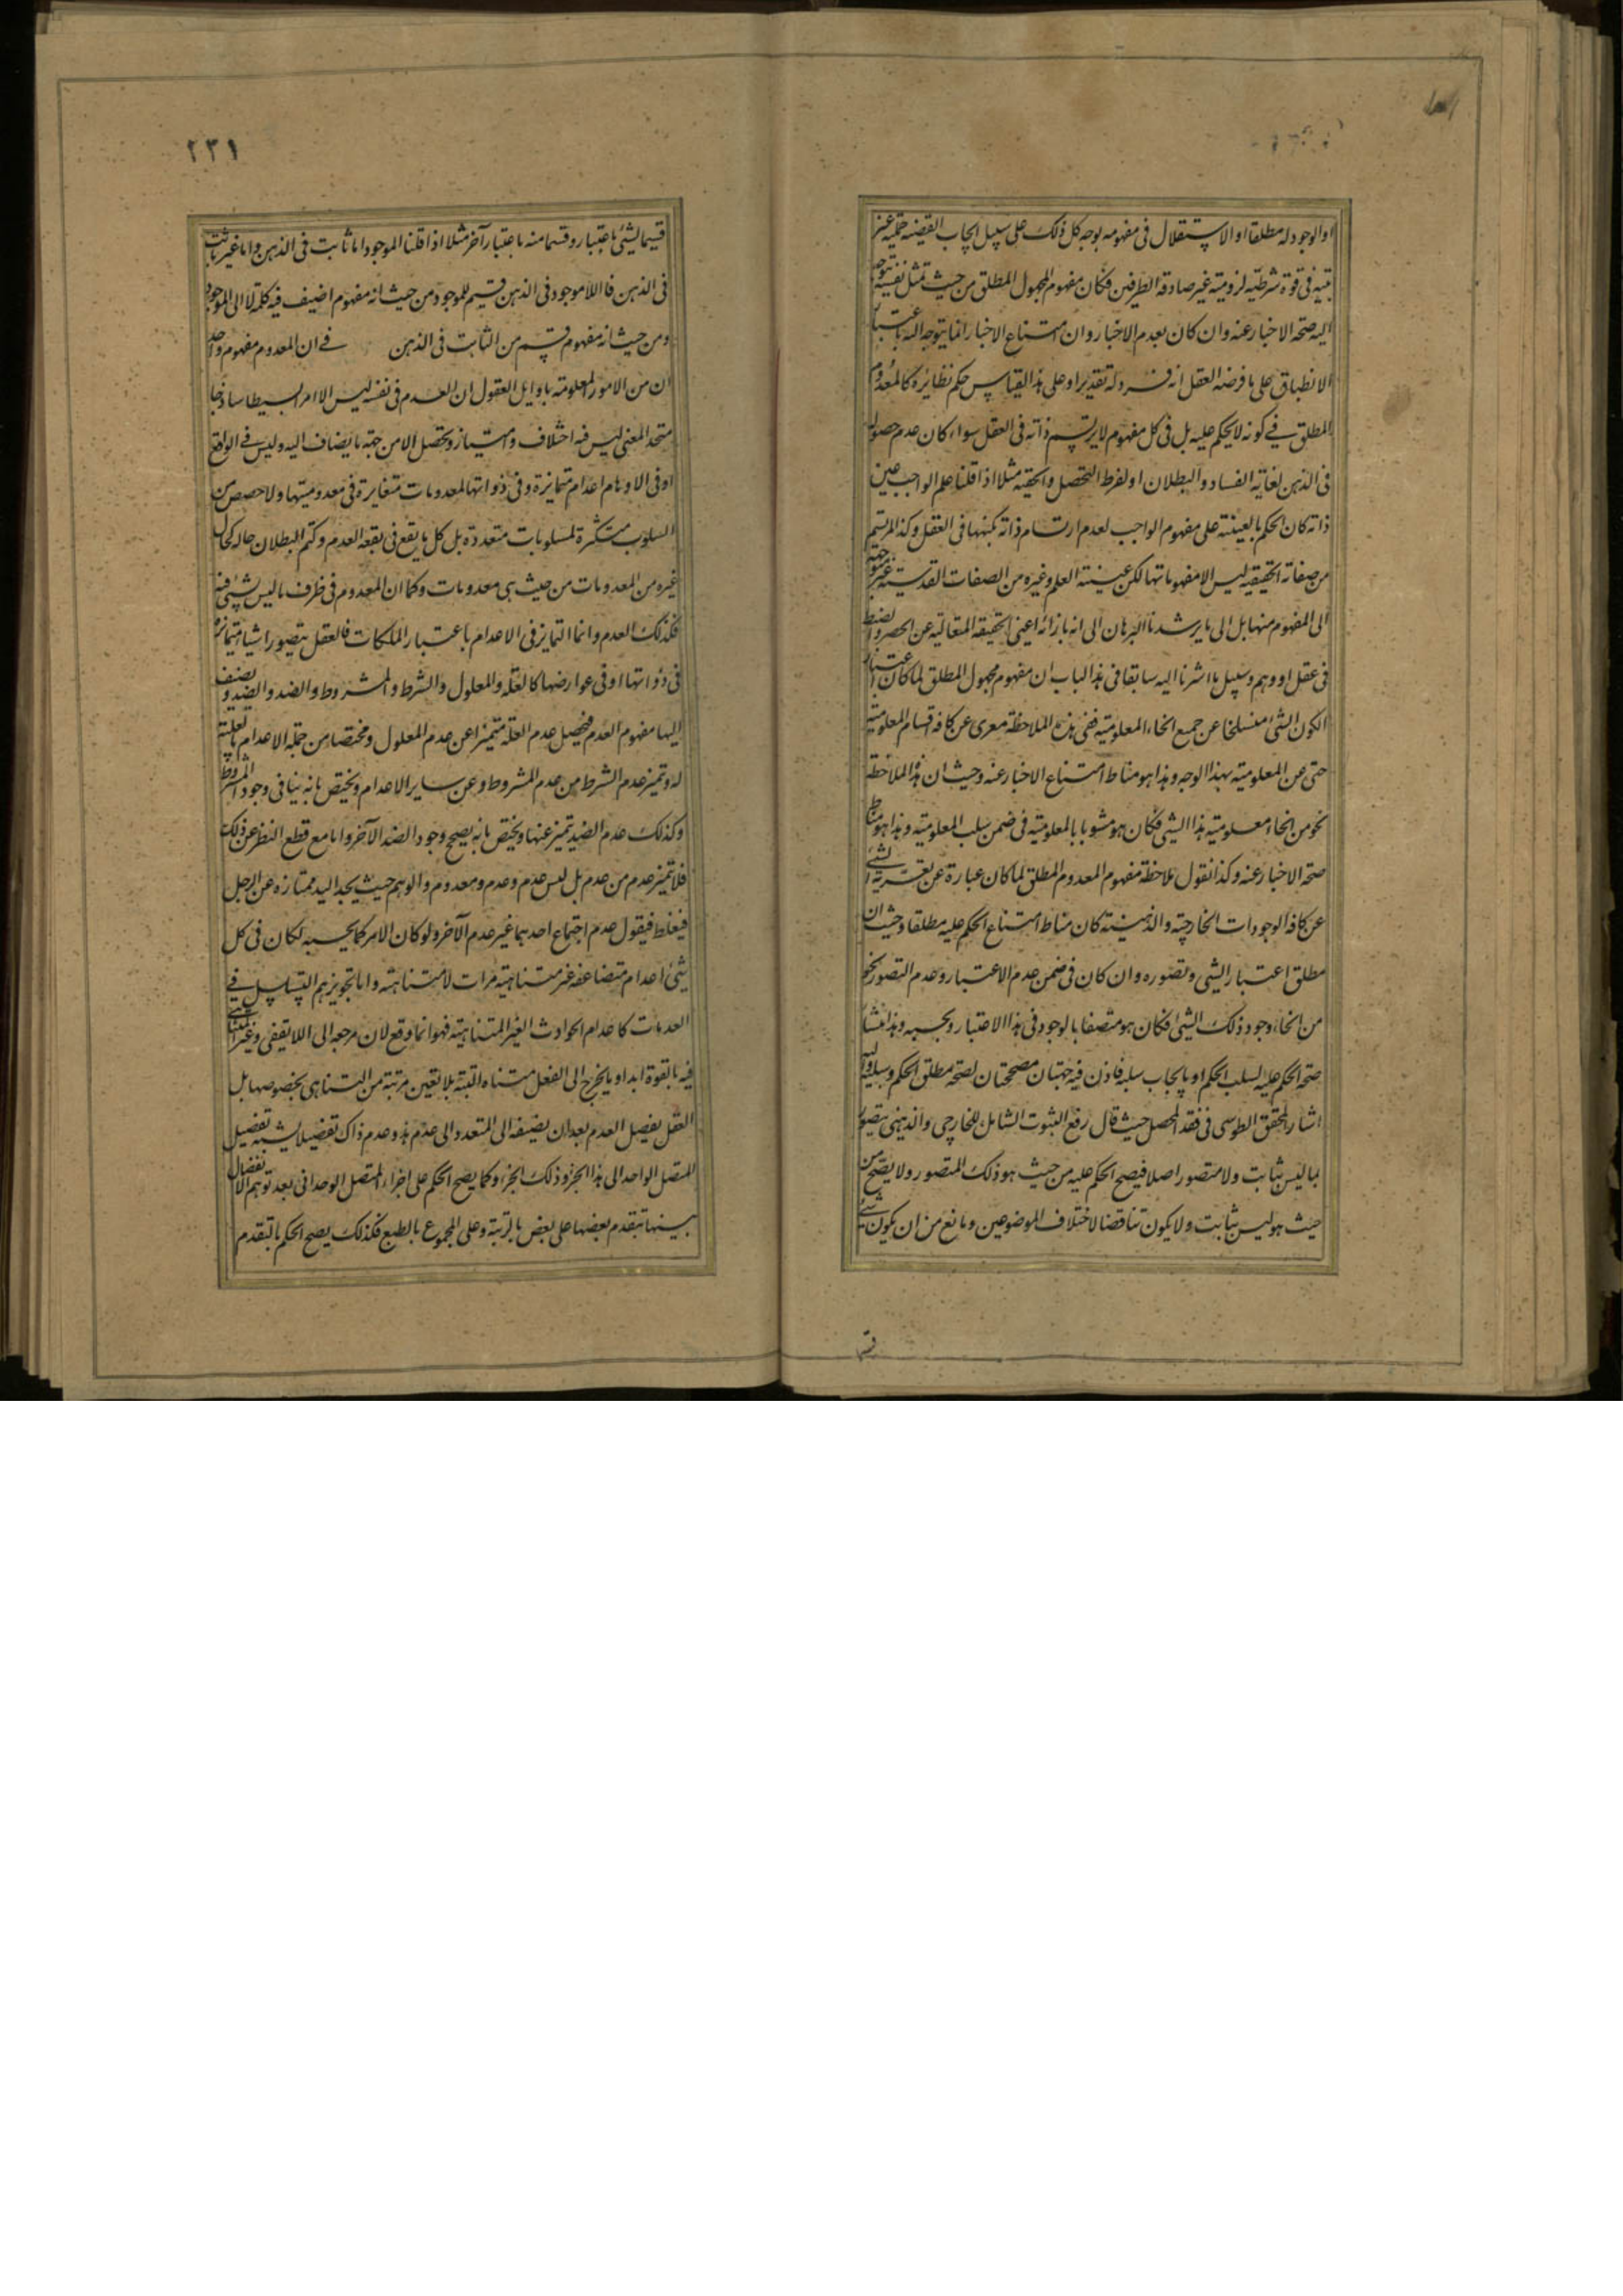 او الوجود له مطلقا او الاستقلال فى مفهومه بوجه كل ذلك على سبيل ايجاب القضية حملية غير
بتية فى قوة شرطية لزومية غير صادقة الطرفين فكان مفهوم المجهول المطلق من حيث تمثل نفسه يتوجه
اليه صحة الاخبار عنه وان كان بعدم الاخبار وان امتناع الاخبار انما يتوجه اليه باعتبار
الانطباق على ما فرضه العقل انه فرد له تقديرا وعلى هذا القياس حكم نظائره كالمعدوم
المطلق فى كونه لا يحكم عليه بل فى كل مفهوم لا يرتسم ذاته فى العقل سواء كان عدم حصوله
فى الذهن لغاية الفساد والبطلان او لفرط التحصل والحقية مثلا اذا قلنا علم الواجب عين
ذاته كان الحكم بالعينية على مفهوم الواجب لعدم ارتسام ذاته بكنهها فى العقل وكذا المرتسم
من صفاته الحقيقية ليس الا مفهوماتها لكن عينية العلم وغيره من الصفات القدسية غير متوجهة
الى المفهوم منها بل الى ما يرشدنا البرهان الى انه بازائه اعنى الحقيقة المتعالية عن الحصر والضبط
فى عقل او وهم وسبيل ما اشرنا اليه سابقا فى هذا الباب ان مفهوم مجهول المطلق لما كان اعتبار
الكون الشئ منسلخا عن جميع انحاء المعلومية ففى هذه الملاحظة معرى عن كافة اقسام المعلومية
حتى عن المعلومية بهذا الوجه وهذا هو مناط امتناع الاخبار عنه وحيث ان هذه الملاحظة
نحو من انحاء معلومية هذا الشئ فكان هو مشوبا بالمعلومية فى ضمن سلب المعلومية وهذا هو مناط
صحة الاخبار عنه وكذا نقول ملاحظة مفهوم المعدوم المطلق لما كان عبارة عن تعرية الشئ
عن كافة الوجودات الخارجية والذهنية كان مناط امتناع الحكم عليه مطلقا وحيث ان
مطلق اعتبار الشئ وتصوره وان كان فى ضمن عدم الاعتبار وعدم التصور نحو
من انحاء وجود ذلك الشئ فكان هو متصفا بالوجود فى هذا الاعتبار وبحسبه وهذا منشأ
صحة الحكم عليه بسلب الحكم او بايجاب سلبه فاذن فيه جهتان مصححتان لصحة مطلق الحكم وسلبه واليه
اشار المحقق الطوسى فى نقد المحصل حيث قال رفع الثبوت الشامل للخارجى والذهنى يتصور
بما ليس بثابت ولا متصور اصلا فيصح الحكم عليه من حيث هو ذلك المتصور ولا يصح من
حيث هو ليس بثابت ولا يكون تناقضا لاختلاف الموضوعين ولا مانع من ان يكون شئ
٢٣١
قسيما لشئ باعتبار وقسما منه باعتبار آخر مثلا اذا قلنا الموجود اما ثابت فى الذهن واما غير ثابت
فى الذهن فاللاموجود فى الذهن قسيم للموجود من حيث انه مفهوم اضيف فيه كلمة لا الى الموجود
ومن حيث انه مفهوم قسم من الثابت فى الذهن فى ان المعدوم مفهوم واحد
ان من الامور المعلومة باوايل العقول ان العدم فى نفسه ليس الا امرا بسيطا ساذجا
متحد المعنى ليس فيه اختلاف وامتياز وتحصل الا من جهة ما يضاف اليه وليس فى الواقع
او فى الاوهام اعدام متمايزة وفى ذواتها لمعدومات متغايرة فى معدوميتها ولا حصص من
السلوب متكثرة لمسلوبات متعددة بل كل ما يقع فى بقعة العدم وكتم البطلان حاله كحال
غيره من المعدومات من حيث هى معدومات وكما ان المعدوم فى ظرف ما ليس بشئ فيه
فكذلك العدم وانما التمايز فى الاعدام باعتبار الملكات فالعقل يتصور اشياء متمايزة
فى ذواتها او فى عوارضها كالعلة والمعلول والشرط والمشروط والضد والضد ويضيف
اليها مفهوم العدم فيحصل عدم العلة متميزا عن عدم المعلول ومختصا من جملة الاعدام بالعلية
له وتميز عدم الشرط من عدم المشروط وعن ساير الاعدام ويختص بانه ينافى وجود المشروط
وكذلك عدم الضد يتميز عنها ويختص بانه يصحح وجود الضد الآخر واما مع قطع النظر عن ذلك
فلا تميز عدم من عدم بل ليس عدم وعدم ومعدوم والوهم حيث يجد اليد ممتازة عن الرجل
فيغلط فيقول عدم احدهما غير عدم الآخر ولو كان الامر كما يحسبه لكان فى كل
شئ اعدام متضاعفة غير متناهية مرات لا متناهية واما تجويزهم التسلسل فى
العدمات كاعدام الحوادث الغير المتناهية فهو انما وقع لان مرجعه الى اللايقفى وغير المتناهى
فيه بالقوة ابدا وما يخرج الى الفعل متناه البتة بلا تعين مرتبة من التناهى بخصوصها بل
العقل يفصل العدم بعد ان يضيفه الى المتعدد الى عدم هذا وعدم ذاك تفصيلا يشبه تفصيل
المتصل الواحد الى هذا الجزء وذلك الجزء وكما يصح الحكم على اجزاء المتصل الوحدانى بعد توهم الانفصال
بينها بتقدم بعضها على بعض بالرتبة وعلى المجموع بالطبع فكذلك يصح الحكم بالتقدم